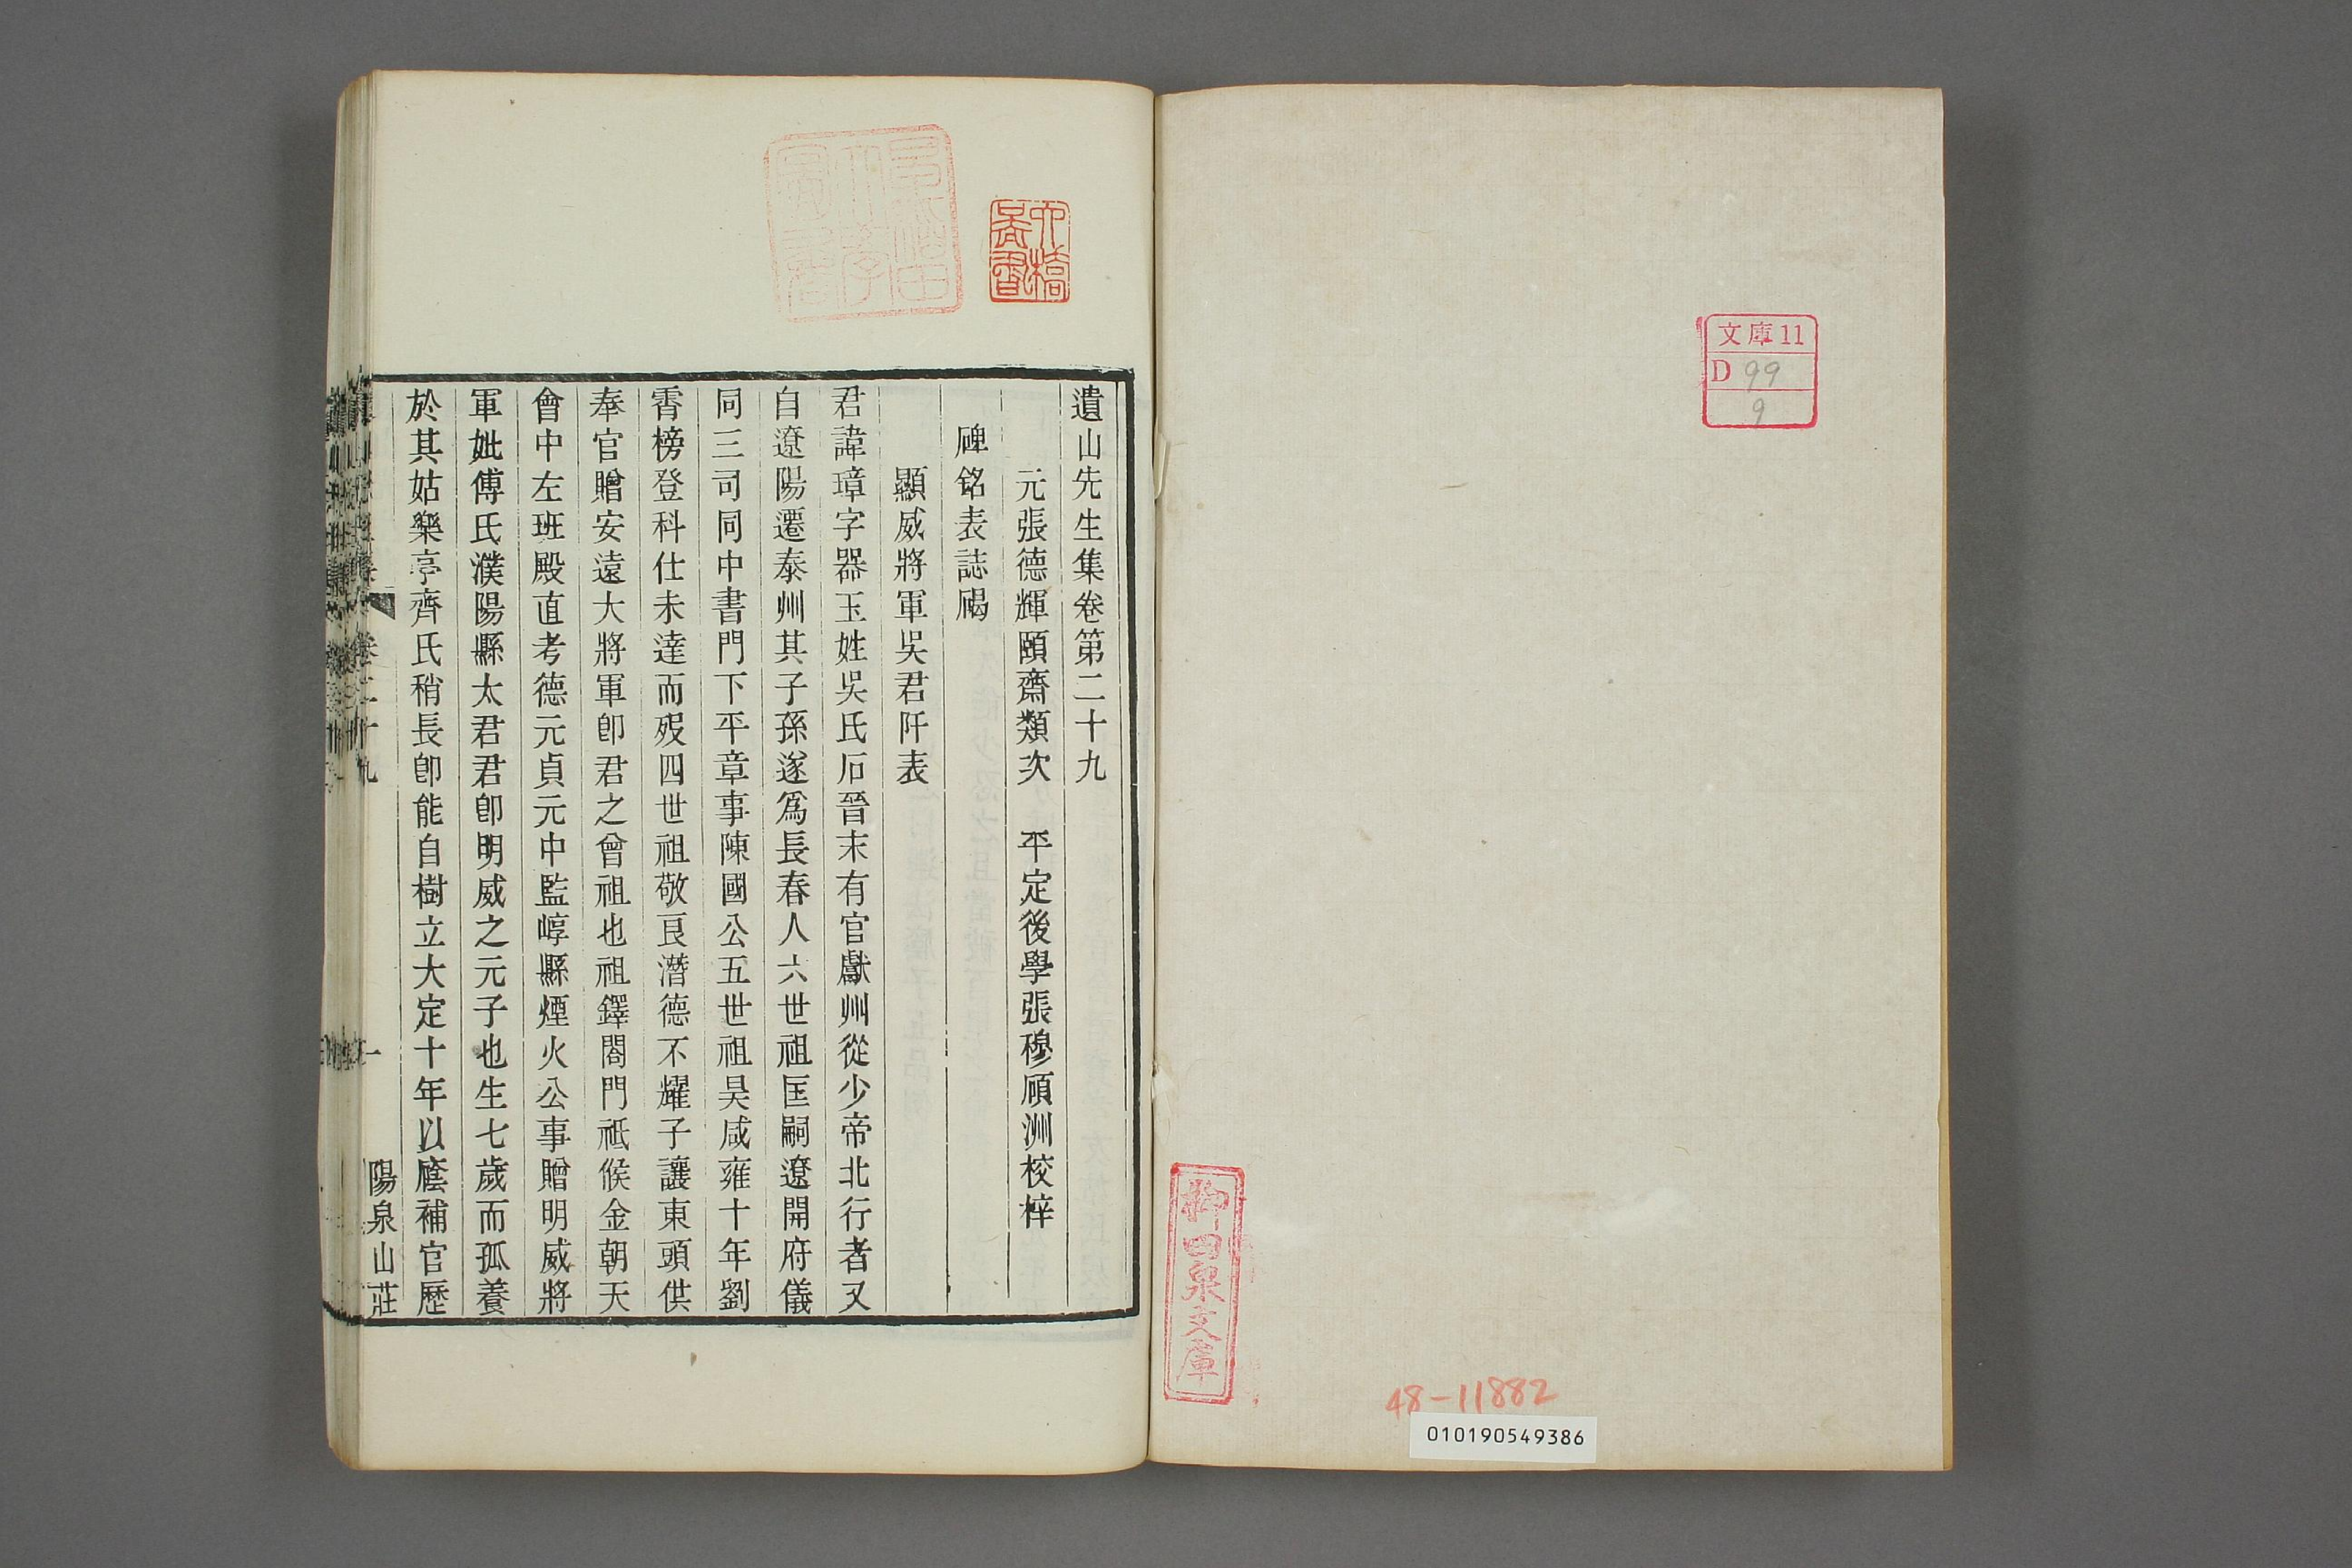 文庫11
D 99
9
柳田泉文庫
48-11882
010190549386
遺山先生集卷第二十九
元張德輝頤齋類次　平定後學張穆碩洲校梓
碑銘表誌碣
顯威將軍吳君阡表
君諱璋字器玉姓吳氏石晉末有官獻州從少帝北行者又
自遼陽遷泰州其子孫遂為長春人六世祖匡嗣遼開府儀
同三司同中書門下平章事陳國公五世祖昊咸雍十年劉
霄榜登科仕未達而歿四世祖敬良潛德不耀子讓東頭供
奉官贈安遠大將軍卽君之曾祖也祖鐸閤門祗候金朝天
會中左班殿直考德元貞元中監崞縣煙火公事贈明威將
軍妣傅氏濮陽縣太君君卽明威之元子也生七歲而孤養
於其姑樂亭齊氏稍長卽能自樹立大定十年以廕補官歷
卷二十九
一
陽泉山莊